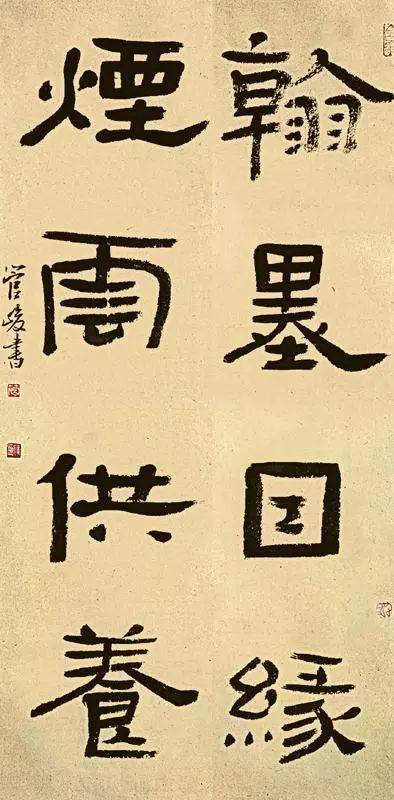 翰墨因緣
煙雲供養
管峻書